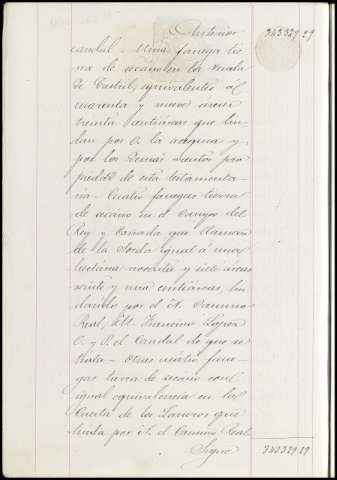 Anterior 343329 29
caudal - Una fanega tie
rra de secano en la
de equivalentes á
cuarenta y nueve áreas
treinta centiáreas que lin
dan por O. la acequia y
por los demas vientos pro
piedad de esta testamenta
ria - Cuatro fanegas tierra
de secano en el Campo del
Rey y Cañada que llaman
de la Sorda igual á una
hectárea noventa y siete áreas
veinte y una centiáreas, lin
dando por el N. Camino
Real, M. Francisco Lopez
O. y P. el Caudal de que se
trata - Otras cuatro fane
gas tierra de secano con
igual equivalencia en la
Cuesta de los que
linda por N. el Camino Real
Sigue 343329 29